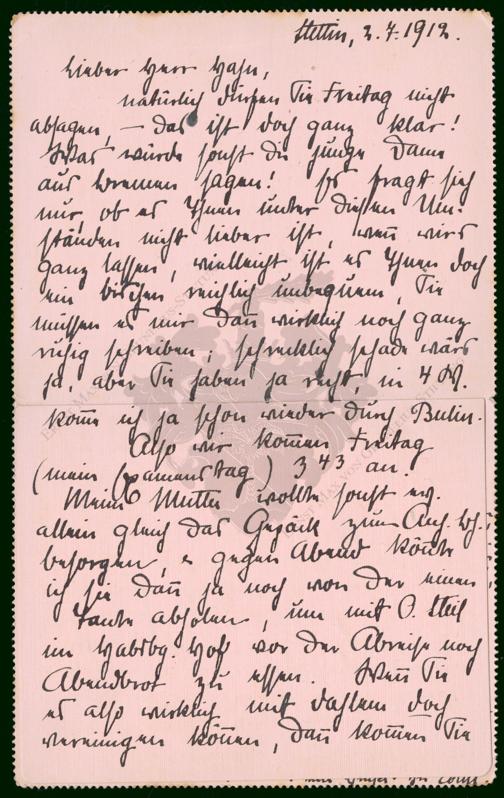 Stettin, 2.7.1912.
Lieber Herr Hahn,
natürlich dürfen Sie Freitag nicht
absagen, – das ist doch ganz klar!
Was würde sonst die junge Dame
aus Bremen sagen! Es fragt sich
nur, ob es Ihnen unter diesen Um-
ständen nicht lieber ist, wenn wirs
ganz lassen, vielleicht ist es Ihnen doch
ein bischen reichlich unbequem, Sie
müssen es mir dann wirklich noch ganz
ruhig schreiben; schrecklich schade wärs
ja, aber Sie haben ja recht, in 4 W.
komme ich ja schon wieder durch Berlin.
Also wir kommen Freitag
(mein Examenstag) 3 43 an.
Meine Mutter wollte sonst ev.
allein gleich das Gepäck zum Anh. Bh.
besorgen, gegen Abend könnte
ich sie dann ja noch von der einen
Tante abholen, um mit O.
im Habsbg. Hof vor der Abreise noch
Abendbrot zu essen. Wenn Sie
es also wirklich mit Dahlem doch
vereinigen können, dann kommen Sie